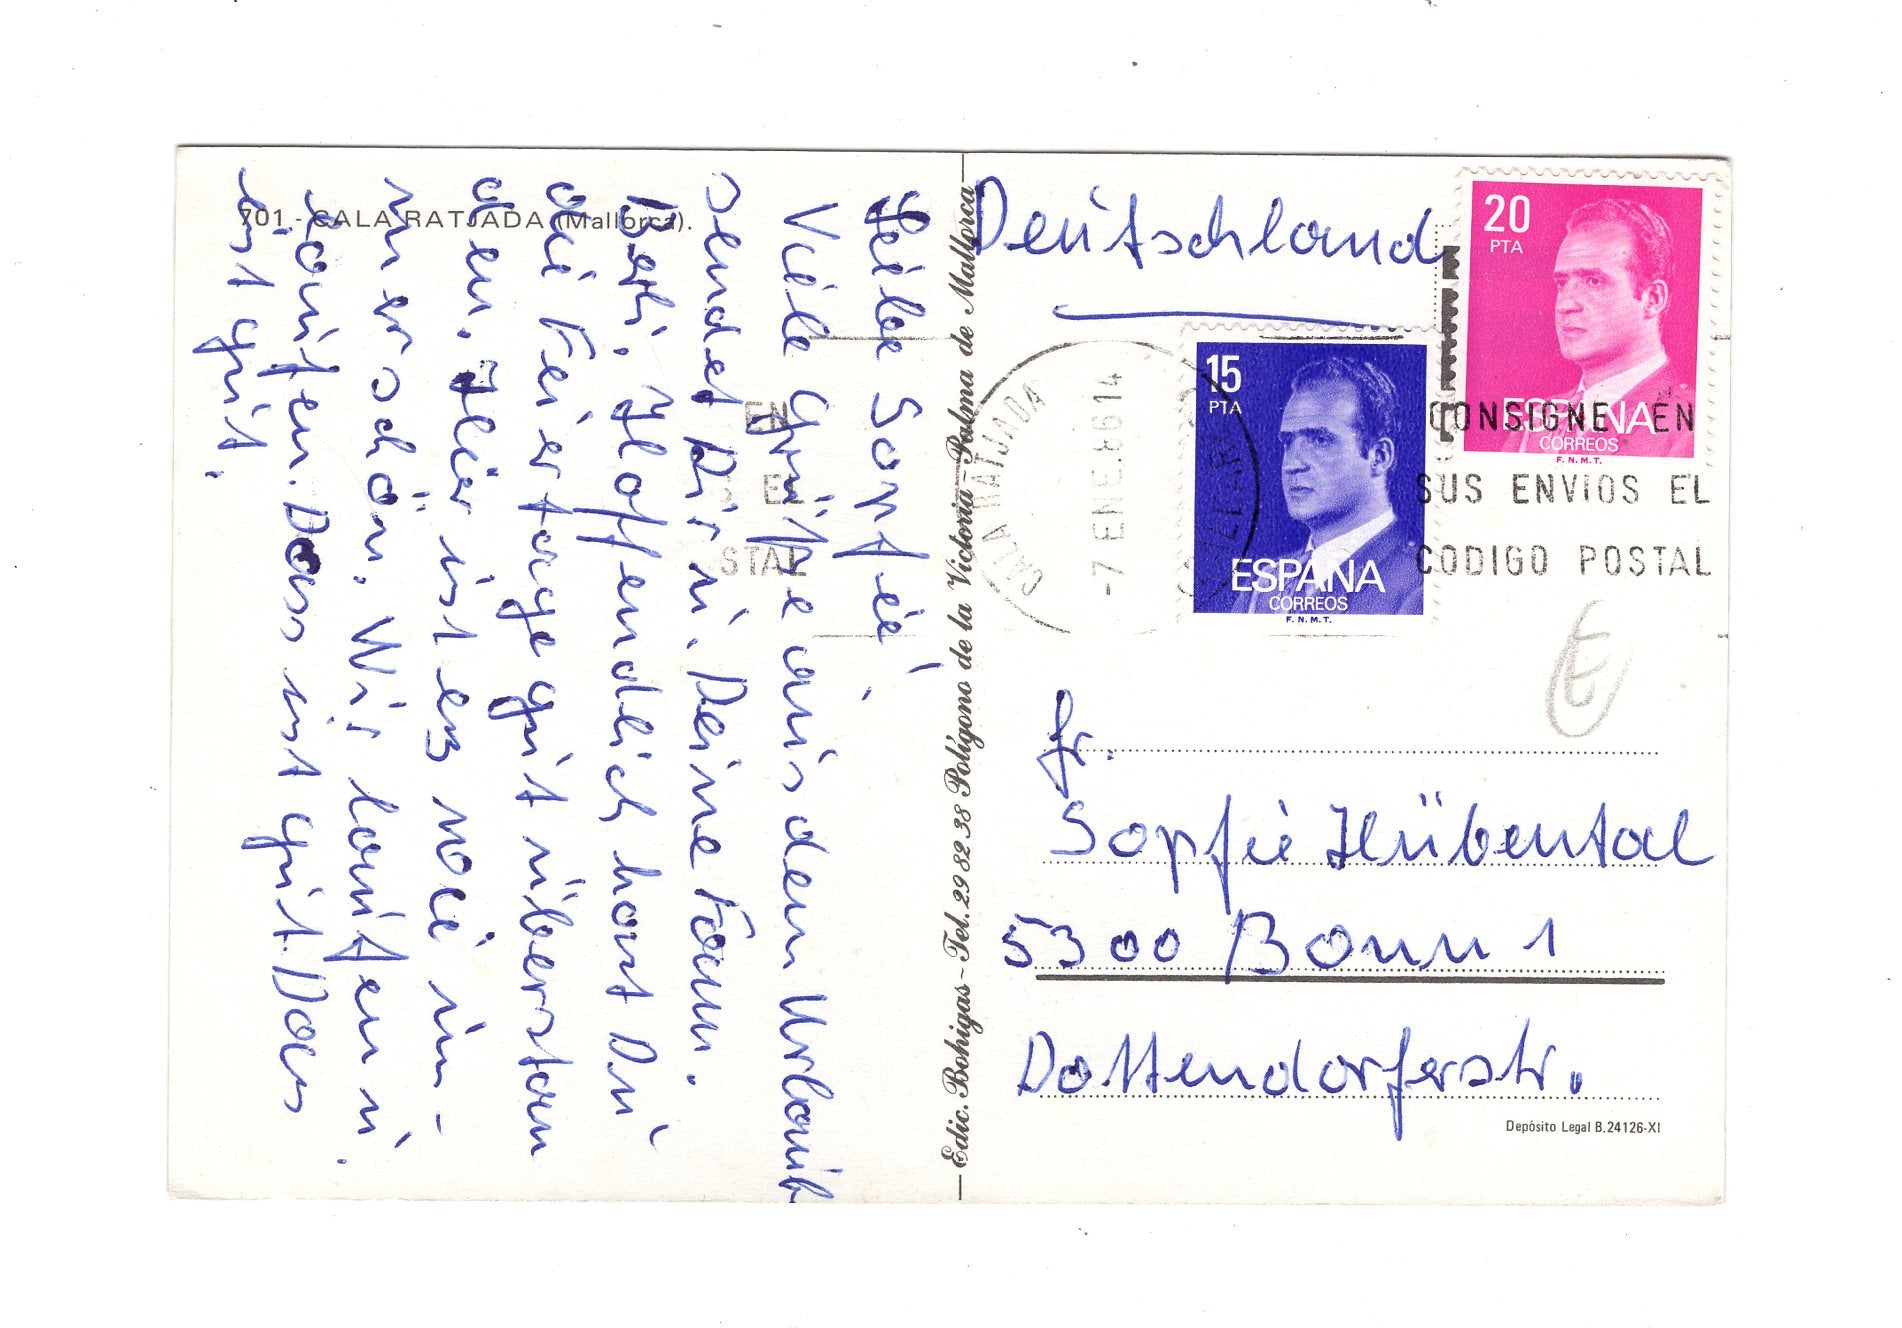 701 - CALA RATJADA (Mallorca).
Liebe Sopfie!
Viele Grüße aus dem Urlaub
sendet Dir u. Deine Fam.
Betti. Hoffendlich hast Du
die Feiertage gut überstan
den. Hier ist es wie im-
mer schön. Wir laufen u.
laufen. Das ist gut. Das
ist gut.
Edic. Bohigas - Tel. 29 82 38 Polígono de la Victoria - Palma de Mallorca
Deutschland
20
PTA
ESPAÑA
CORREOS
F.N.M.T.
15
PTA
ESPAÑA
CORREOS
F.N.M.T.
CALA RATJADA
-7 ENE.86 14
CONSIGNE EN
SUS ENVIOS EL
CODIGO POSTAL
EN
EL
STAL
Fr.
Sopfie Hübental
5300 Bonn 1
Dottendorferstr.
Depósito Legal B.24126-XI